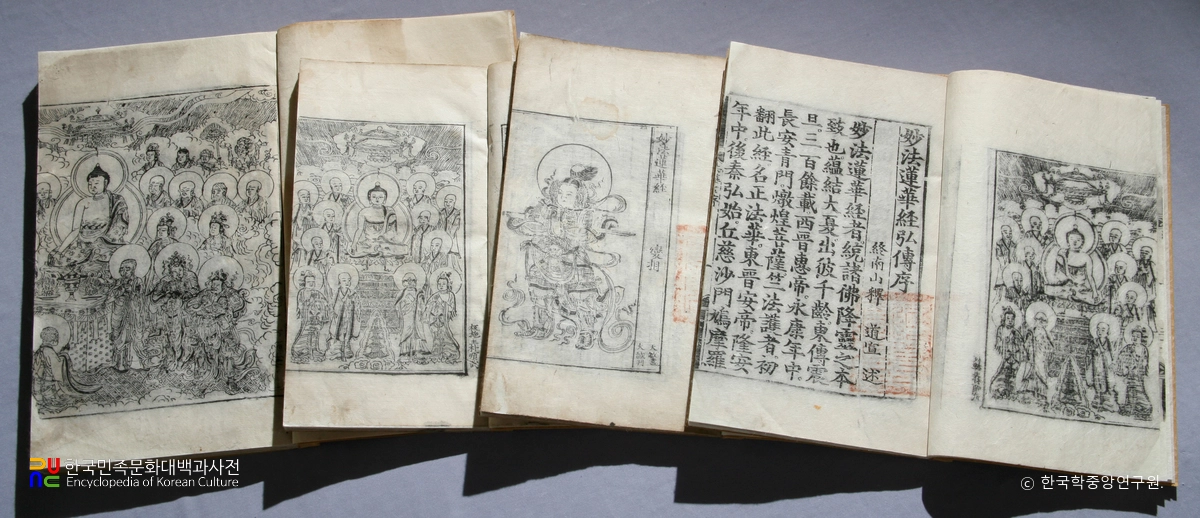 妙法蓮華經弘傳序
終南山釋 道宣 述
妙法蓮華經者統諸佛降靈之本
致也蘊結大夏出彼千齡東傳震
旦三百餘載西晉惠帝永康年中
長安青門燉煌菩薩竺法護者初
翻此經名正法華東晉安帝隆安
年中後秦弘始丘慈沙門鳩摩羅
妙法蓮華經 變相
한국민족문화대백과사전
Encyclopedia of Korean Culture
ⓒ 한국학중앙연구원.